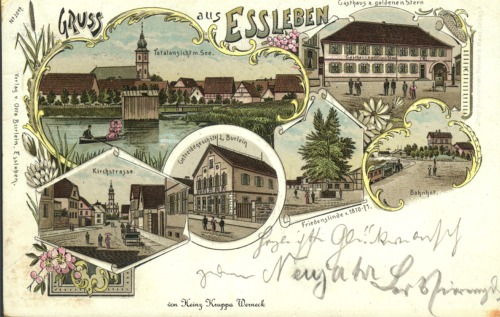 Gruss aus Essleben
Gasthaus z. goldenen Stern
Totalansicht m. See.
Verlag v. Otto Burlein, Essleben.
Kirchstrasse
Friedenslinde v. 1870-71.
Bahnhof.
Herzlichen Glückwunsch
zum Neujahr
von Heinz Kruppa Werneck